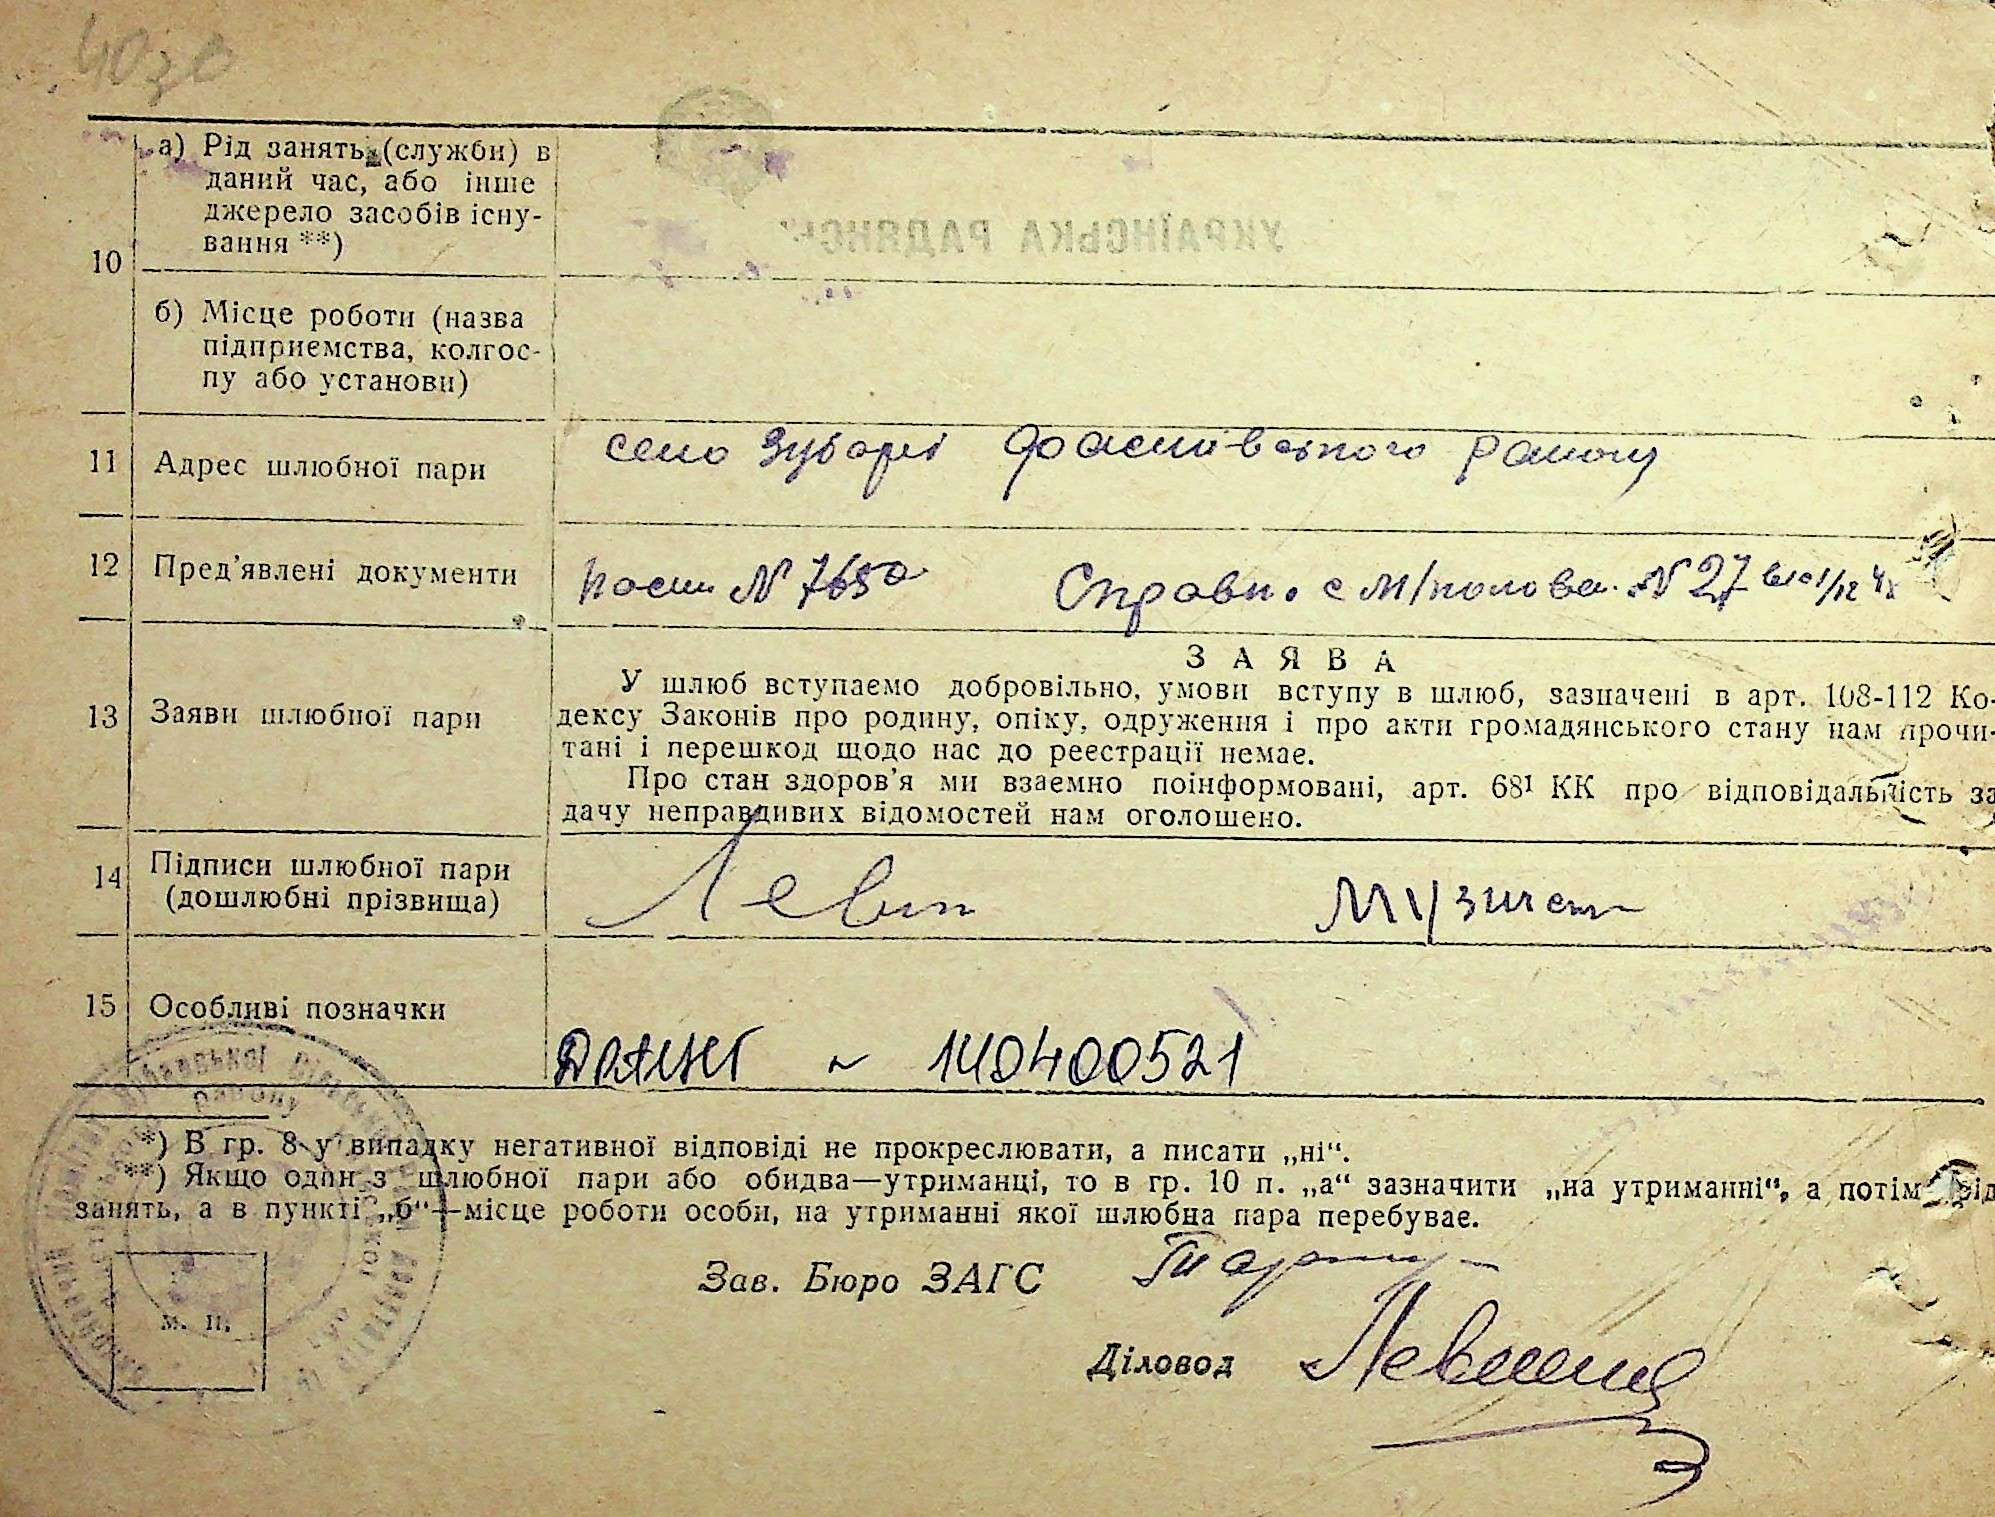 а) Рід занять (служби) в
даний час, або інше
джерело засобів існу-
вання **)
10
б) Місце роботи (назва
підприємства, колгос-
пу або установи)
11 Адрес шлюбної пари
село Зубарі Фрасшівського району
12 Пред’явлені документи
№ 7650 Справк. с М/полова. № 27
З А Я В А
13 Заяви шлюбної пари
У шлюб вступаємо добровільно, умови вступу в шлюб, зазначені в арт. 108-112 Ко-
дексу Законів про родину, опіку, одруження і про акти громадянського стану нам прочи-
тані і перешкод щодо нас до реєстрації немає.
Про стан здоров’я ми взаємно поінформовані, арт. 68¹ КК про відповідальність за
дачу неправдивих відомостей нам оголошено.
14 Підписи шлюбної пари
(дошлюбні прізвища)
Левип
15 Особливі позначки
140400521
*) В гр. 8 у випадку негативної відповіді не прокреслювати, а писати „ні“.
**) Якщо один з шлюбної пари або обидва—утриманці, то в гр. 10 п. „а“ зазначити „на утриманні“, а потім рід
занять, а в пункті „б“—місце роботи особи, на утриманні якої шлюбна пара перебуває.
Зав. Бюро ЗАГС
м. п.
Діловод
УКРАЇНСЬКА РАДЯНСЬ
району